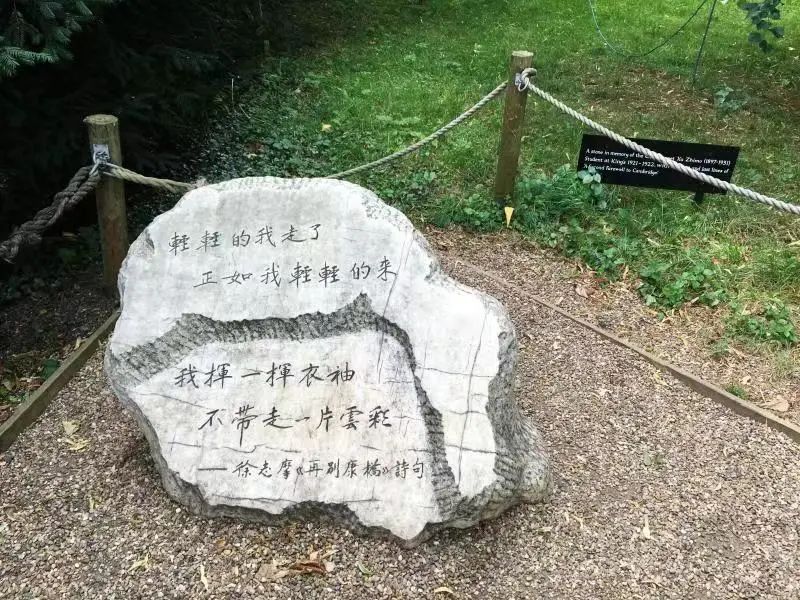 輕輕的我走了
正如我輕輕的來
我揮一揮衣袖
不帶走一片雲彩
——徐志摩《再别康橋》詩句
A stone in memory of the Xu Zhimo (1897-1931)
Student at King's 1921-1922, with and last lines of
'A Second Farewell to Cambridge'